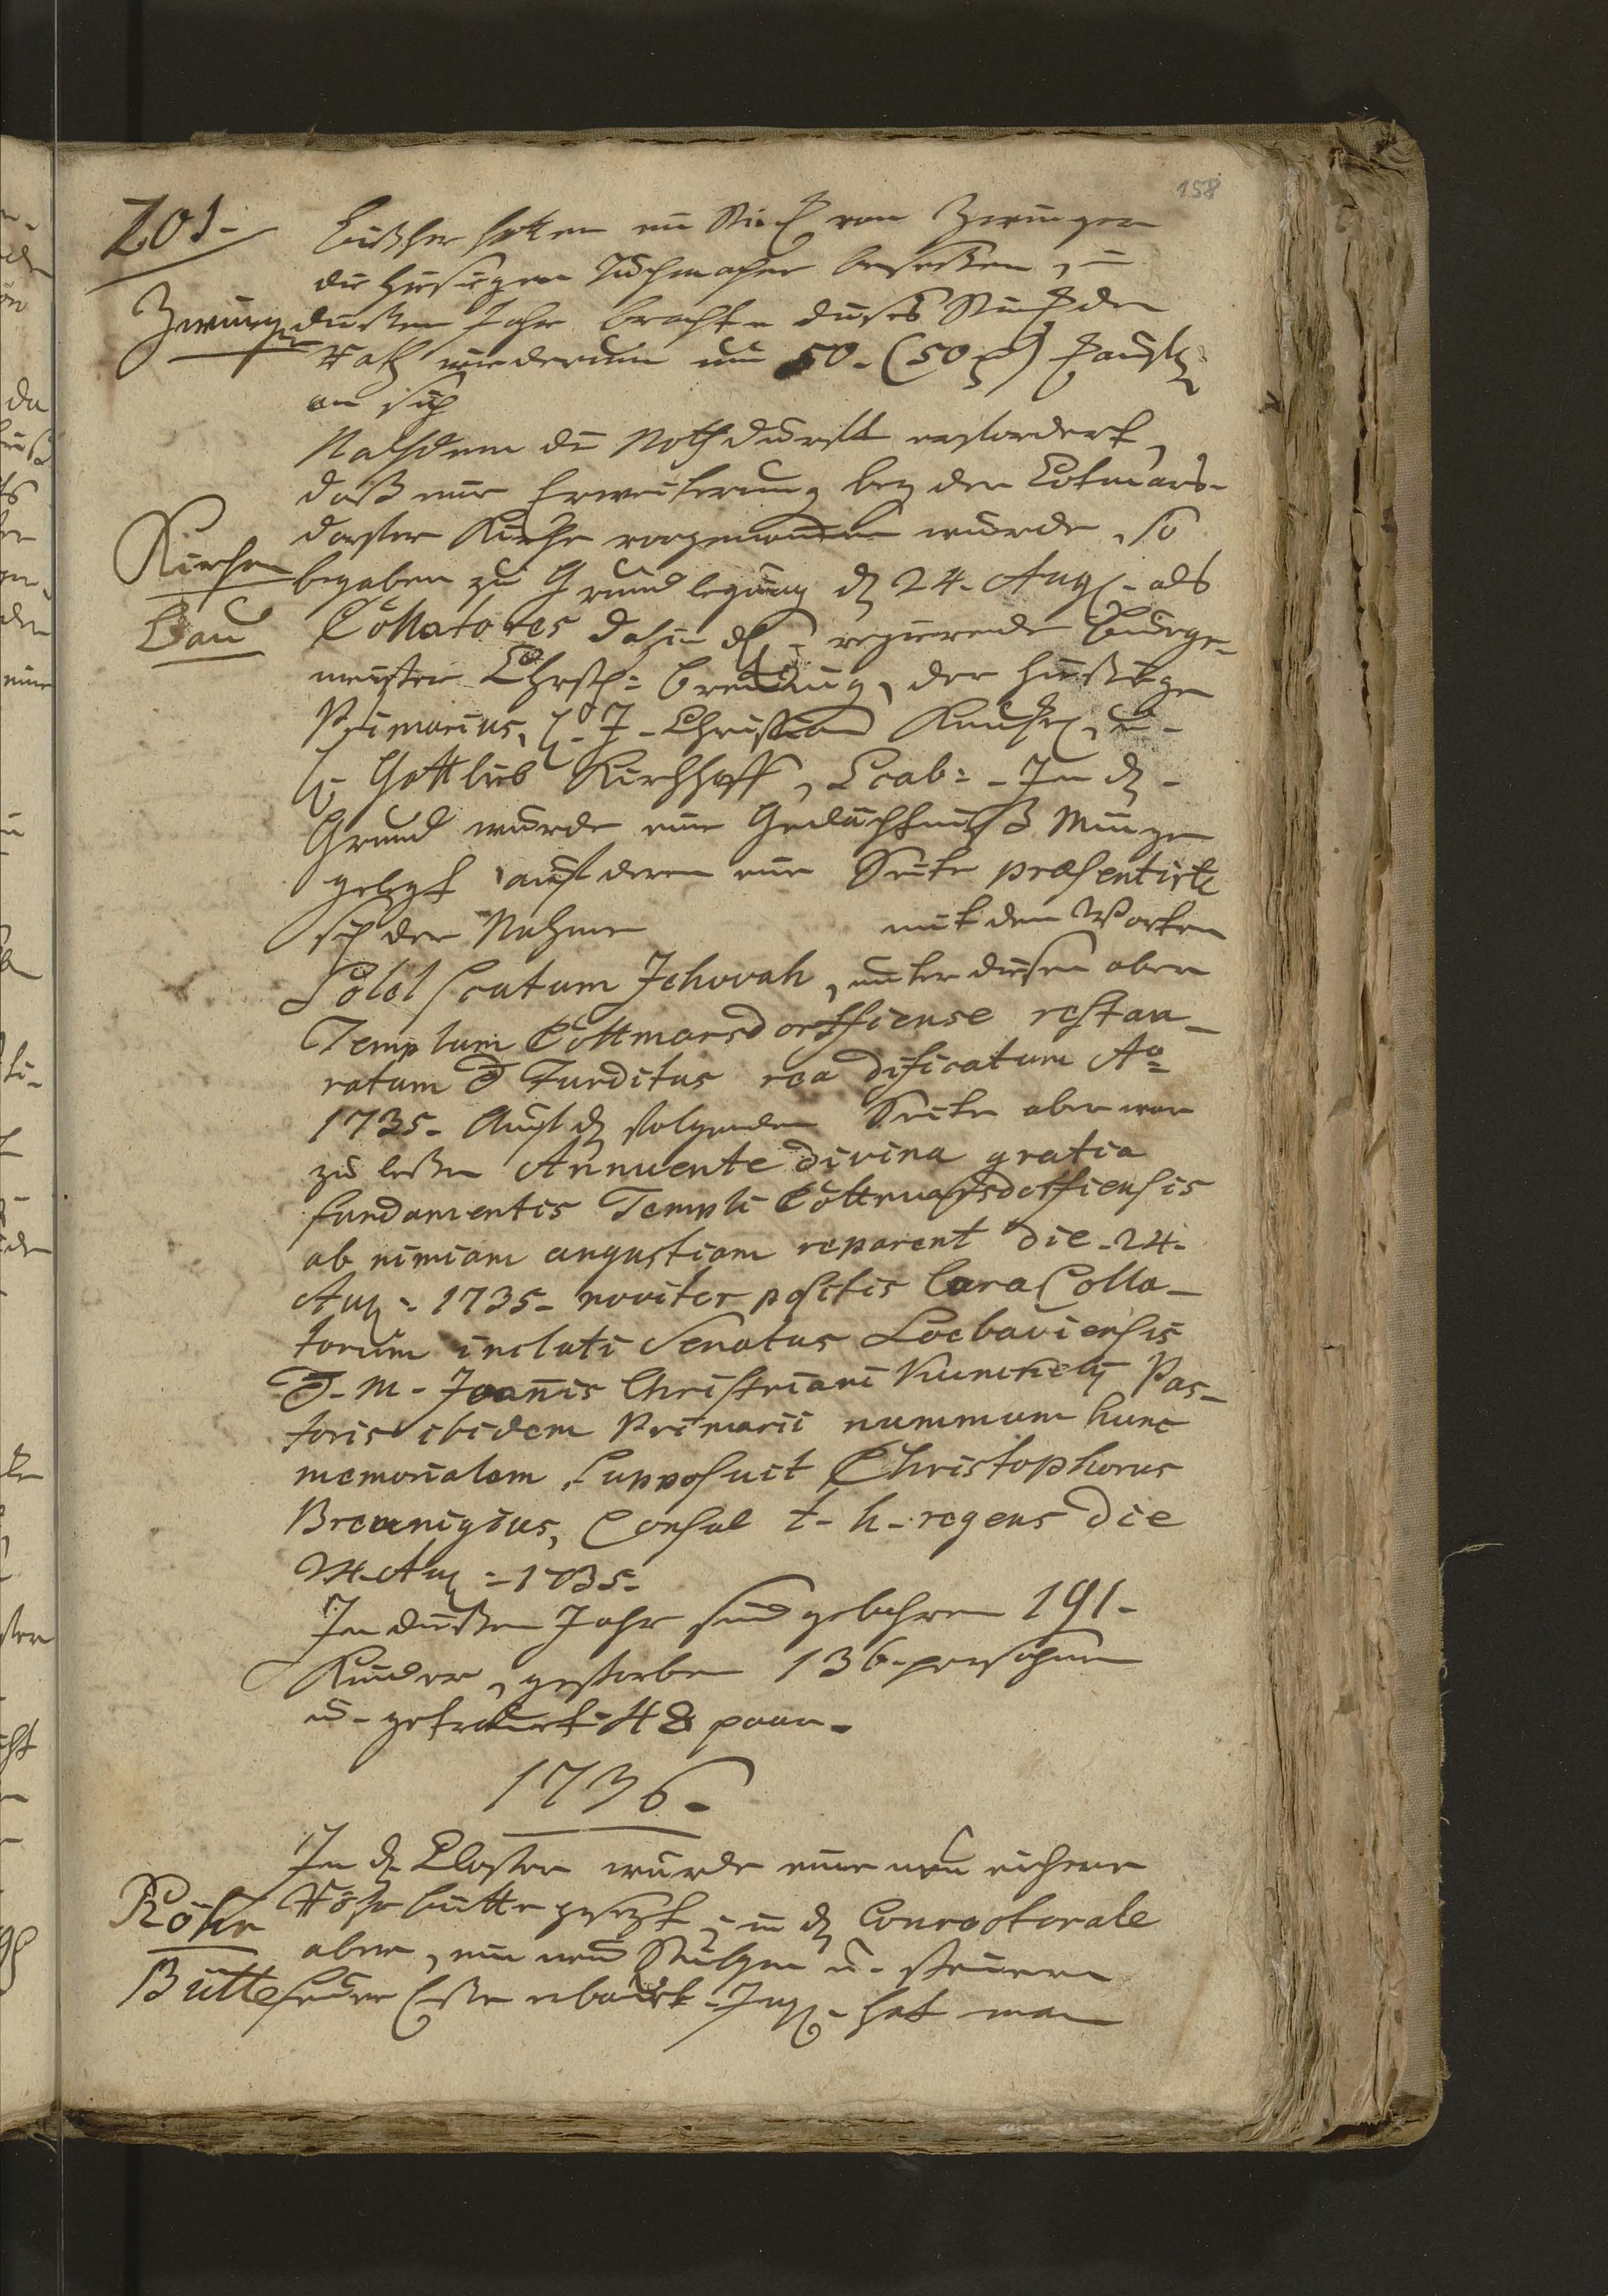 158
201-
Bißher hatten ein Stück vom Zwinger
die hiesigen Tuchmacher beseßen, in
Zwinger
dießem Jahr brachte dieses Stück der
Rath wiederum um 50. (50 ) Kauffl.
an sich
Nachdem die Nothdurfft erfordert,
daß eine Erweiterung bey der Cotmars-
dorffer Kirche vorgenommen wurde, so
Kirchen
begaben zu Grundlegung d. 24. Aug. als
Bau
Collatores dahin d. regierende Burge-
meister Chrsth: Breunig, der hießige
Primarius, H. J. Christian Kunckel, u.
H. Gottlieb Kirchhoff, Scab: In d.
Grund wurde eine Gedächtniß Müntze
gelegt auf deren eine Seite præsentirte
sich der Nahme mit den Worten
Sol et Scutum Jehovah, unter diesen aber
Templum Cottmarsdorffiense restau-
ratum & funditus reædificatum Ao
1735. Auf d. folgenden Seite aber war
zu leßen Annuente divina gratia
fundamentis Templi Cottmarsdorffiensis
ob nimiam angustiam reparent die 24.
Aug: 1735. noviter positis Cura Colla-
torum incluti Senatus Loebaviensis
& M. Joanis Christiani Kunckelij Pas-
toris ibidem Primarii nummum hunc
memorialem supposuit Christophorus
Breunigius, Consul t. h. regens die
24. Aug: 1735.
In dießem Jahr sind gebohren 191-
Kinder, gestorben 136. persohnen
u. getrauet 48 paar.
1736.
In d. Closter wurde eine neu eichene
Röhr
Röhrbütte gesetzt, in d. Conrectorale
aber, ein neu Stübgen u. steinern
Bütte
Feuer Eße erbauet. Ingl. hat man